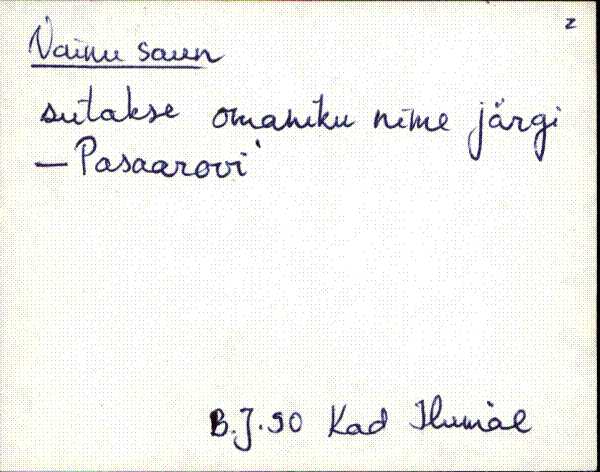 2
Vainu saun
suitakse omaniku nime järgi
— Pasaarovi
B.J. 90 Kad Ilumäe